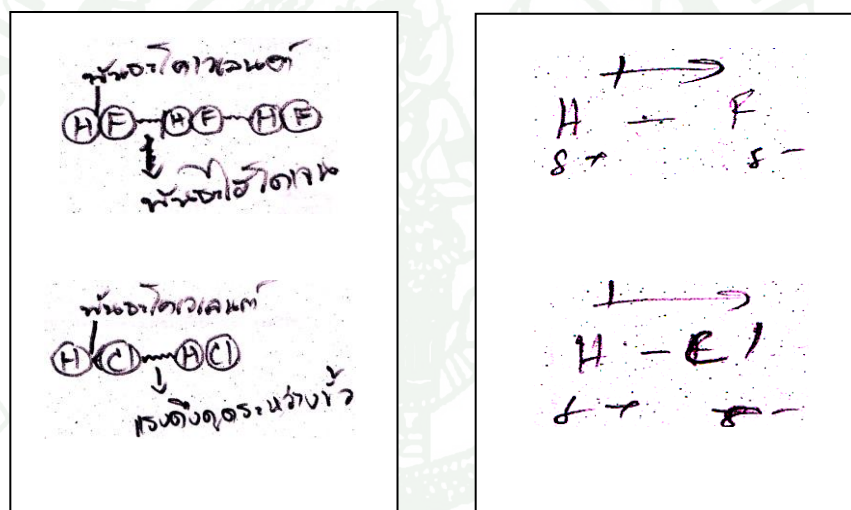 พันธะโคเวเลนต์
H F H F H F
พันธะไฮโดรเจน
พันธะโคเวเลนต์
H Cl H Cl
แรงดึงดูดระหว่างขั้ว
H — F
δ+ δ-
H — Cl
δ+ δ-